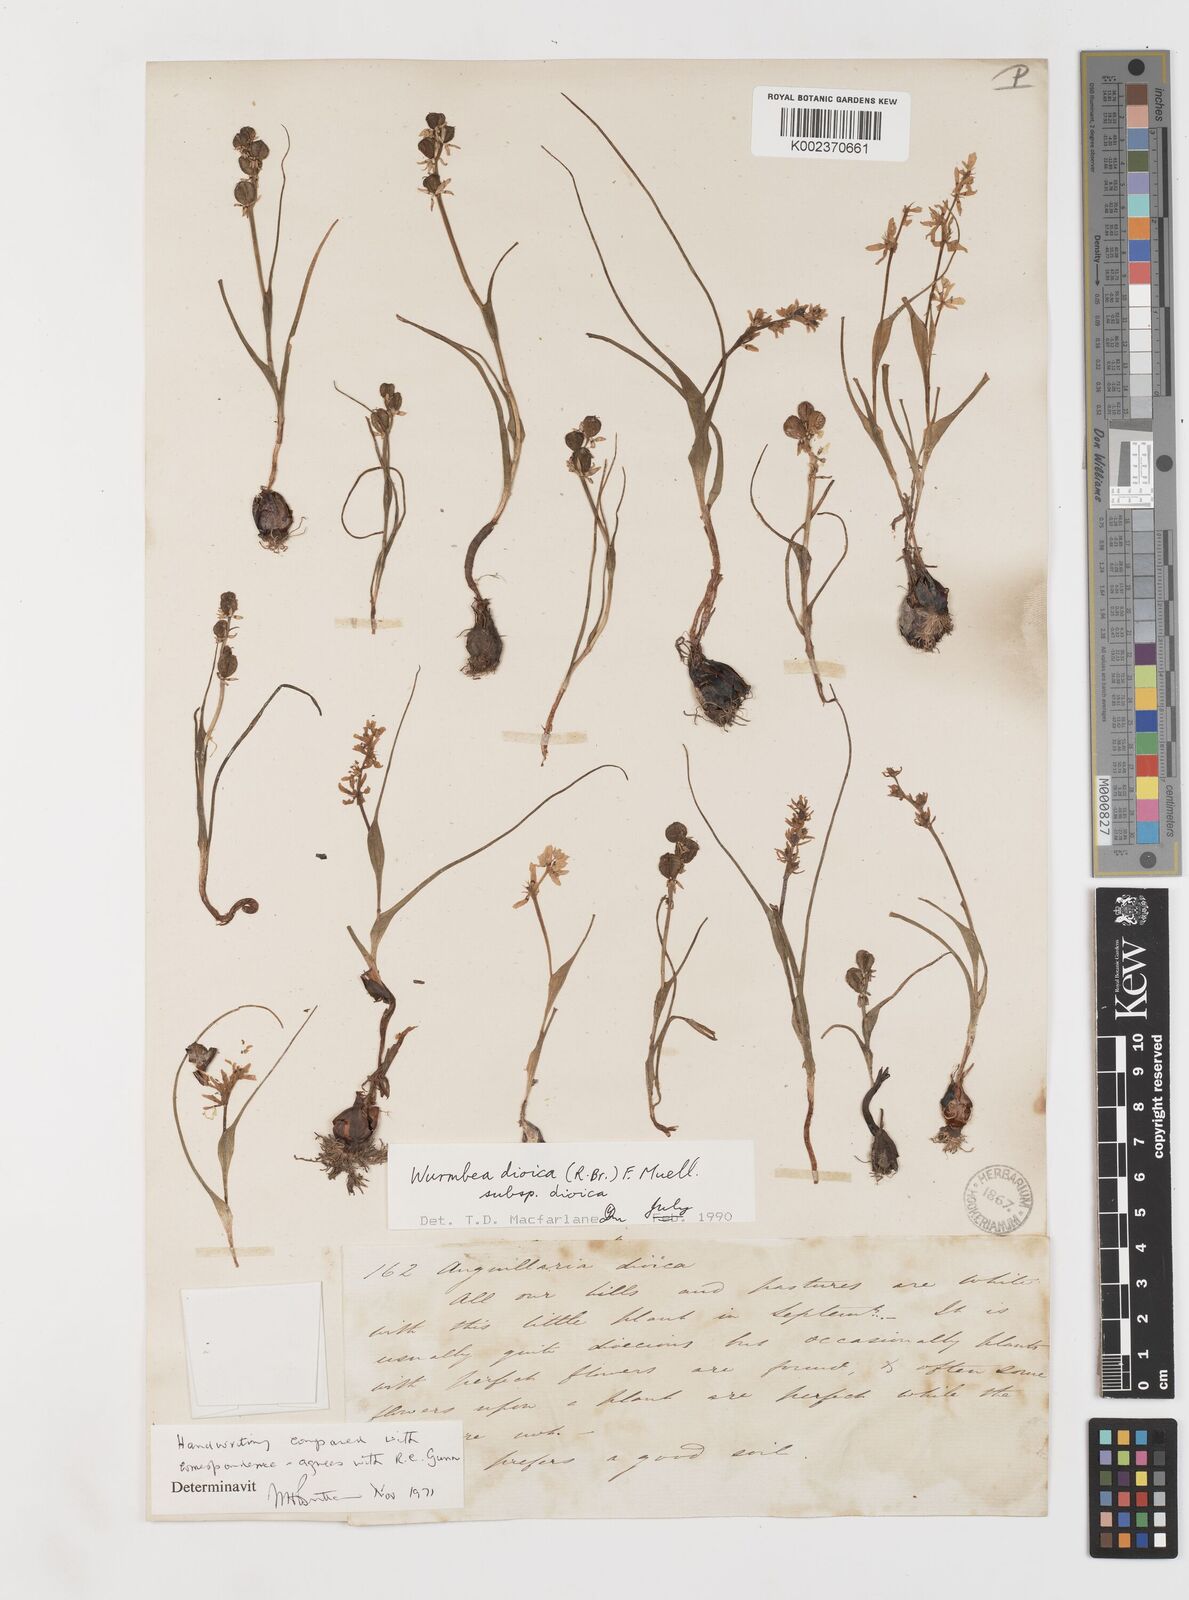 P
ROYAL BOTANIC GARDENS KEW
K002370661
Wurmbea dioica (R.Br.) F. Muell.
subsp. dioica
Det. T.D. Macfarlane July Feb. 1990
HERBARIUM
1867
HOOKERIANUM
162 Anguillaria dioica
All our hills and pastures are white
with this little plant in Septemr._ It is
usually quite dioecious but occasionally plants
with perfect flowers are found, & often some
flowers upon a plant are perfect while the
re not.-
prefers a good soil.
Handwriting compared with
correspondence - agrees with R.C. Gunn
Determinavit Nov 1971
Don Williams
Density
centimeters
M000827
Kew
Royal Botanic Gardens
0 1 2 3 4 5 6 7 8 9 10
cm
copyright reserved